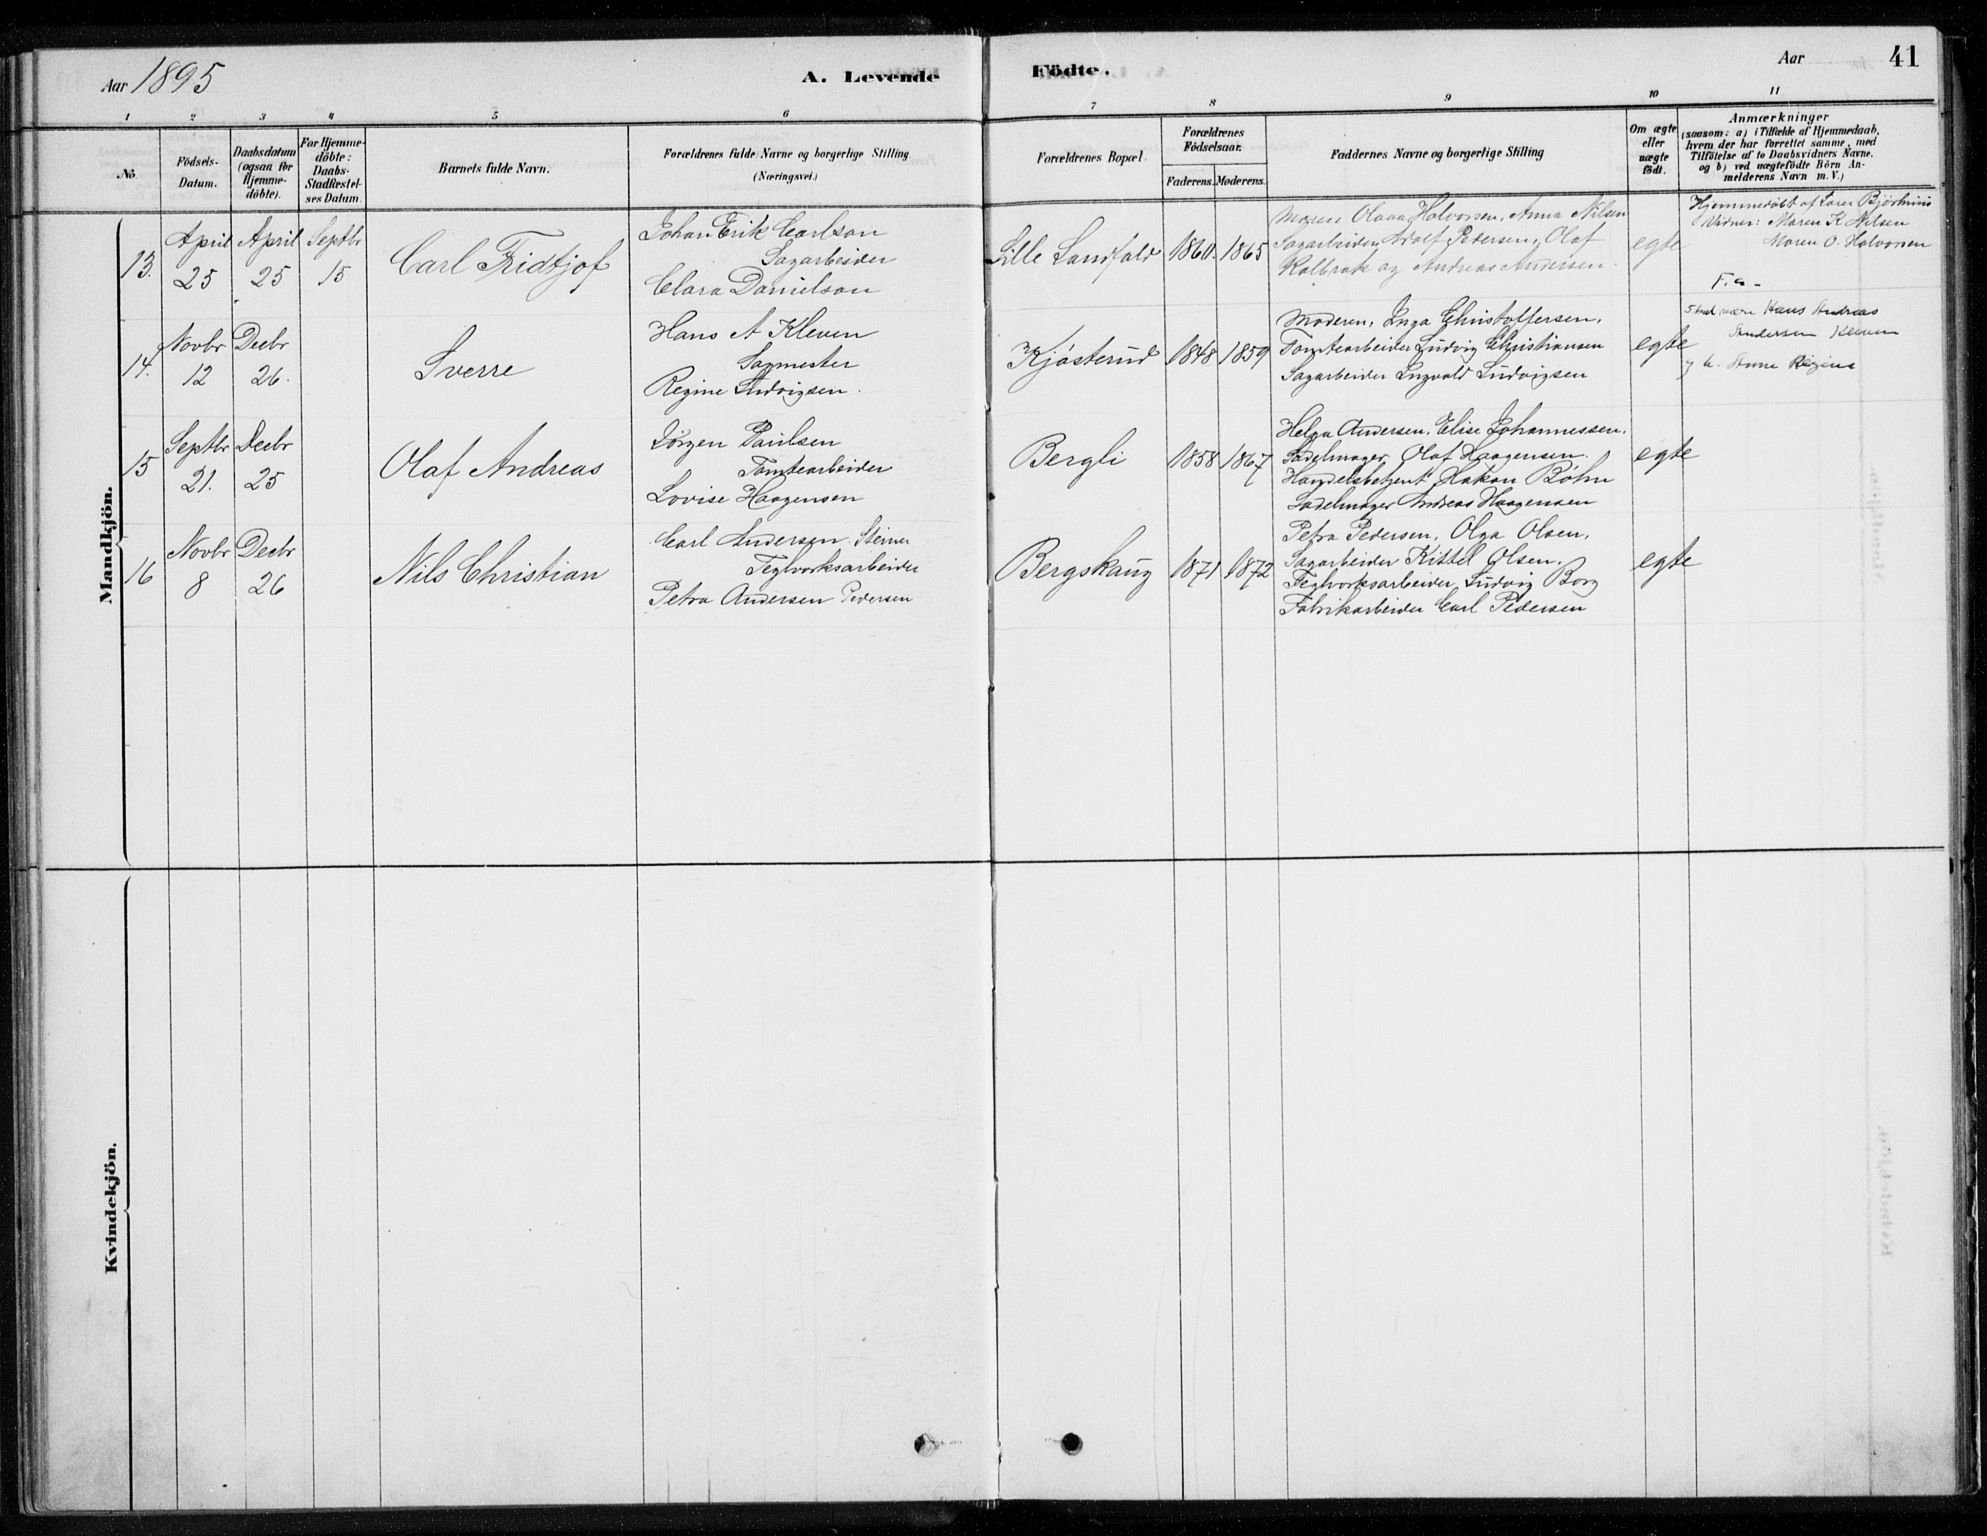 Aar 1895
A. Levende
Födte.
Aar
41
1
2
3
4
5
6
7
8
9
10
11
No.
Födsels-
Datum.
Daabsdatum
(ogsaa for
Hjemme-
döbte).
For Hjemme-
döbte:
Daabs-
Stadfæstel-
ses Datum.
Barnets fulde Navn.
Forældrenes fulde Navne og borgerlige Stilling
(Næringsvei.)
Forældrenes Bopæl.
Forældrenes
Födselsaar.
Faderens.
Moderens.
Faddernes Navne og borgerlige Stilling
Om ægte
eller
uægte
födt.
Anmærkninger
(saasom: a) i Tilfælde af Hjemmedaab,
hvem der har forrettet samme, med
Tilföielse af to Daabsvidners Navne.
og b) ved uægtefödte Börn An-
melderens Navn m. V.)
Mandkjön.
13.
April
25
April
25
Septbr
15
Carl Fridtjof
Johan Erik Carlson
Sagarbeider
Clara Danielson
Lille Landfald
1860.
1865
Maren Olava Halvorsen, Anna Nilsen
Sagarbeider Adolf Pedersen, Olaf
Kolbræk og Andreas Andersen.
egte
Hjemmedöbt af Lærer
Vidner: Maren K. Nilsen
Maren O. Halvorsen
14.
Novbr
12
Decbr
26.
Sverre
Hans A Kleven
Sagmester
Regine Ludvigsen.
Kjøsterud
1848
1859
Moderen, Inga Christoffersen,
Tomtearbeider Ludvig Christiansen
Sagarbeider Ingvald Ludvigsen
egte
Skal være Hans Andreas
Andersen Kleven
Regine
15
Septbr
21.
Decbr
25
Olaf Andreas
Jörgen Paulsen
Tomtearbeider
Lovise Haagensen
Bergli
1858
1867
Helga Andersen, Elise Johannessen.
Sadelmager Olaf Haagensen.
Handelsbetjent Hakon Böhn
Sadelmager Andreas Haagensen
egte
16
Novbr
8
Decbr
26
Nils Christian
Carl Andersen
Teglverksarbeider
Petra Andersen Pedersen
Bergskaug
1871
1872
Petra Pedersen, Olga Olsen,
Sagarbeider Kittel Olsen,
Teglverksarbeider Ludvig Borg
Fabrikarbeider Carl Pedersen
egte
Kvindekjön.